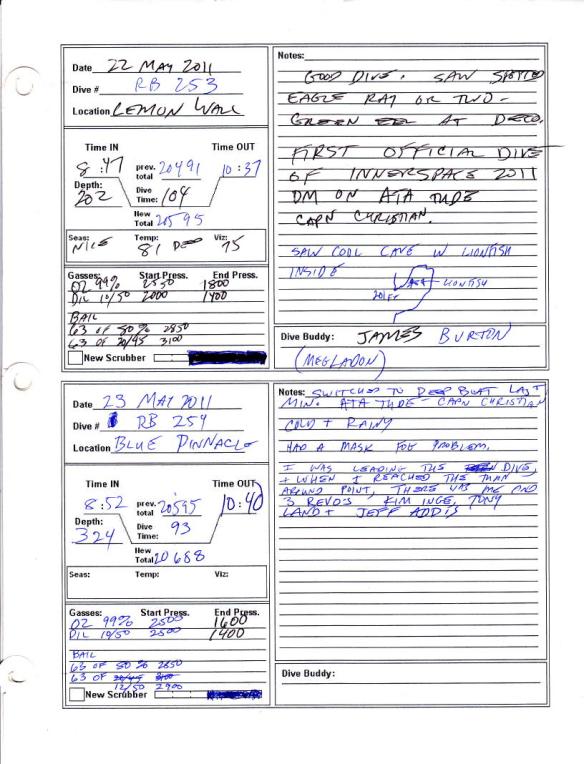 Date 22 MAY 2011
Dive # RB 253
Location LEMON WALL
Time IN
Time OUT
8:47
prev. total 20491
10:37
Depth: 202
Dive Time: 104
New Total 20595
Seas: NICE
Temp: 81
Viz: 75
Gasses: Start Press. End Press.
O2 99% 2350 1800
DIL 10/50 2000 1400
BAIL
63 OF 50% 2850
63 OF 20/45 3100
New Scrubber
Notes:
GOOD DIVE. SAW SPOTTED
EAGLE RAY OR TWO-
GREEN EEL AT DECO.
FIRST OFFICIAL DIVE
OF INNERSPACE 2011
DM ON ATA TUDE
CAPN CHRISTIAN.
SAW COOL CAVE W LIONFISH
INSIDE
LIONFISH
201FT
Dive Buddy: JAMES BURTON
(MEGLADON)
Date 23 MAY 2011
Dive # RB 254
Location BLUE PINNACLE
Time IN
Time OUT
8:52
prev. total 20595
10:40
Depth: 324
Dive Time: 93
New Total 20688
Seas:
Temp:
Viz:
Gasses: Start Press. End Press.
O2 99% 2500 1600
DIL 10/50 2500 1400
BAIL
63 OF 50% 2850
63 OF 20/45 3100
12/50 2900
New Scrubber
Notes: SWITCHED TO DEEP BOAT LAST
MIN. ATA TUDE - CAPN CHRISTIAN
COLD + RAINY
HAD A MASK FOG PROBLEM.
I WAS LEADING THE DIVE,
+ WHEN I REACHED THE TURN
AROUND POINT, THERE WAS ME AND
3 REVO'S KIM INGE, TONY
LAND + JEFF ADDIS
Dive Buddy: